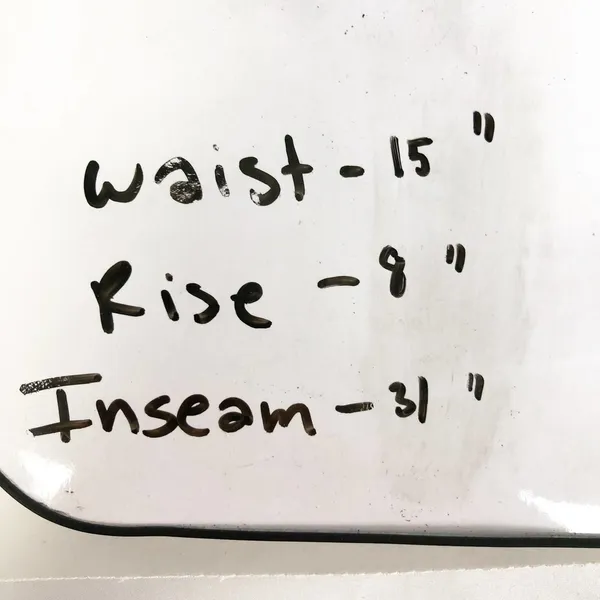 Waist - 15 "
Rise - 8 "
Inseam - 31 "